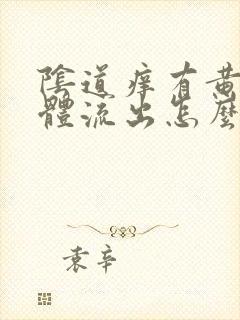 陰道癢有黃
體流出怎麼
袁辛